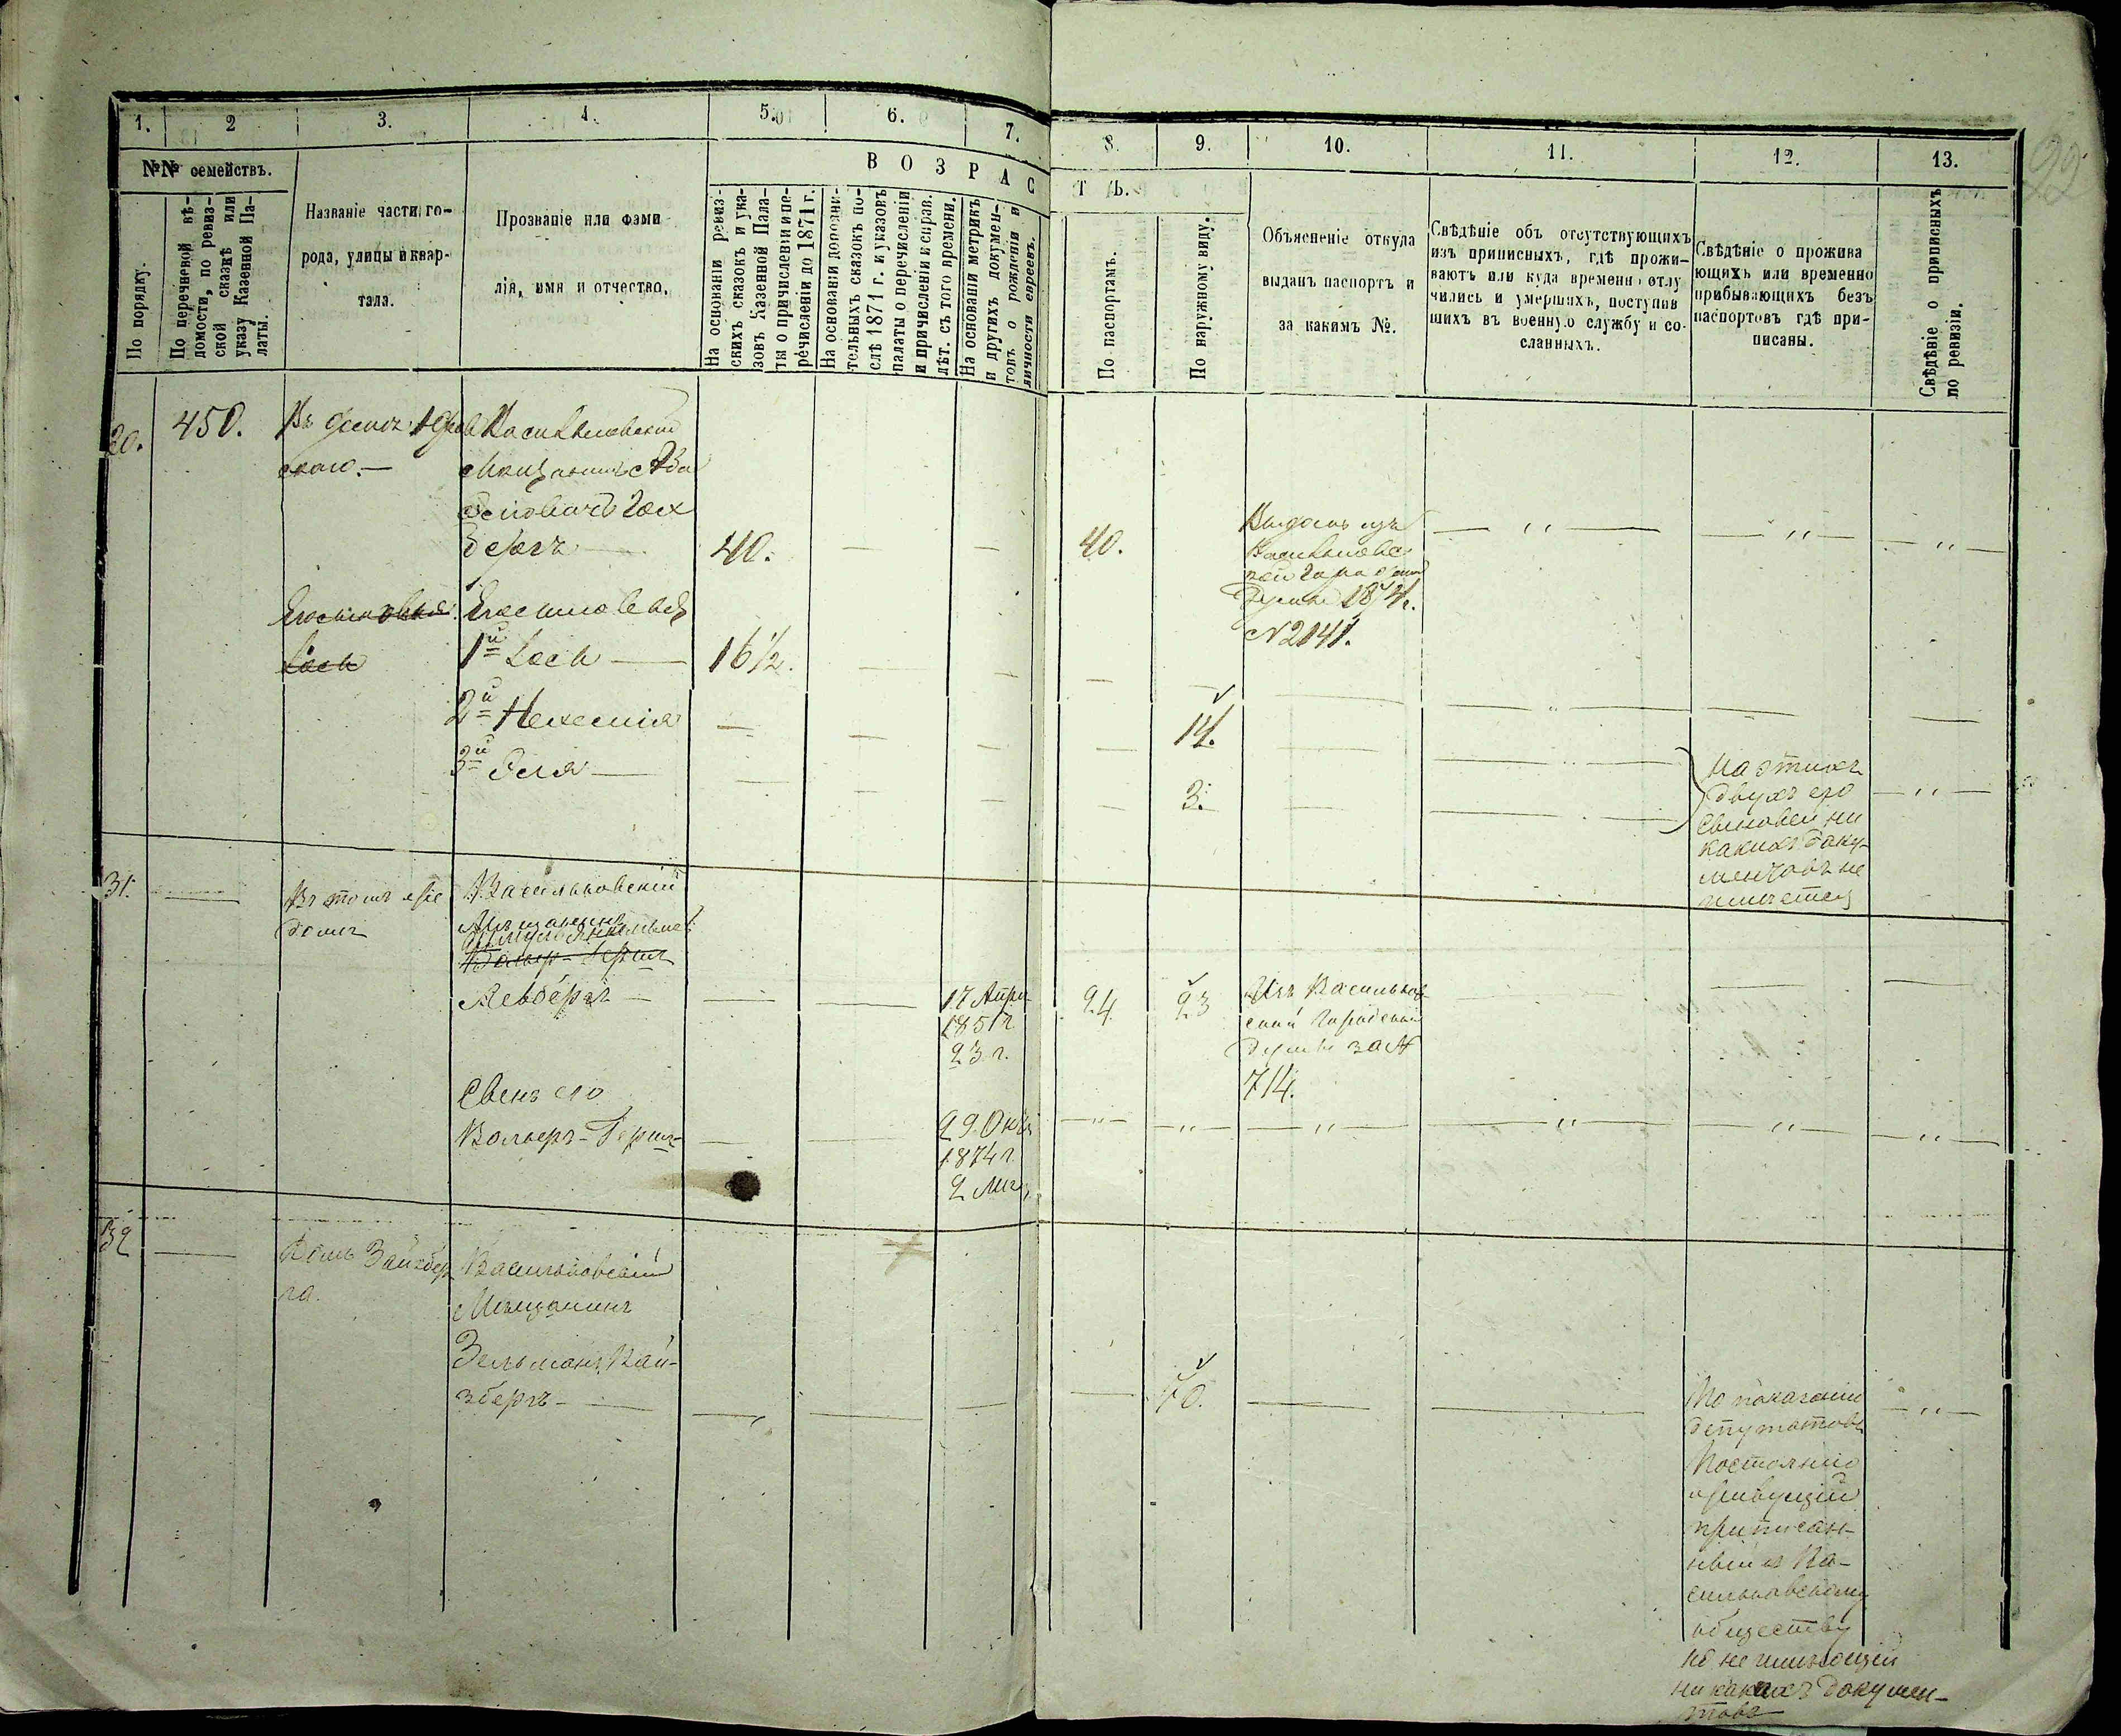 1.
2
3.
4.
5.
6.
7.
8.
9.
10.
11.
12.
13.
22
№№ семействъ.
По порядку.
По перечневой вѣ-
домости, по ревиз-
ской сказкѣ или
указу Казенной Па-
латы.
Названіе части го-
рода, улицы и квар-
тала.
Прозваніе или фами
лія, имя и отчество.
ВОЗРАС
На основаніи ревиз-
скихъ сказокъ и ука-
зовъ Казенной Пала-
ты о причисленіи и пе-
речисленіи до 1871 г.
На основаніи дополни-
тельныхъ сказокъ по-
слѣ 1871 г. и указовъ
палаты о перечисленіи
и причисленіи и справ.
лѣт. съ того времени.
На основаніи метрикъ
и другихъ докумен-
товъ о рожденіи и
личности евреевъ.
Т Ъ.
По паспортамъ.
По наружному виду.
Объясненіе откуда
выданъ паспортъ и
за какимъ №.
Свѣдѣніе объ отсутствующихъ
изъ приписныхъ, гдѣ прожи-
ваютъ или куда временно отлу
чились и умершихъ, поступив
шихъ въ военную службу и со-
сланныхъ.
Свѣдѣніе о прожива
ющихъ или временно
прибывающихъ безъ
паспортовъ гдѣ при-
писаны.
Свѣдѣніе о приписныхъ
по ревизіи.
450.
Въ домѣ
скаго.—
Васильковский
Мѣщанинъ
бергъ —
40.
40.
Выданъ изъ
Васильковс
кой Город
Думы 1874г.
№2141.
сыновья
1й —
16 1/2.
2й Нехемія
14.
3й —
3.
На этихъ
двухъ его
сыновей ни
какихъ доку-
ментовъ не
имѣется
31.
Въ томъ же
домѣ
Васильковскій
Мѣщанинъ
Вольфъ-Герш
17 Апрѣ
1851 г.
23 г.
24
23
Изъ Васильков-
ской Городской
думы за №
714.
Сынъ его
Вольфъ-Герш-
29. Окт
1874 г.
2 мѣс.
32
Домъ Зайзбер
га.
Васильковскій
Мѣщанинъ
Зельманъ Вай-
збергъ —
70.
По показанію
депутатовъ
Постоянно
живущій
приписан-
ный къ Ва-
сильковскому
обществу
но не имѣющій
никакихъ докумен-
товъ